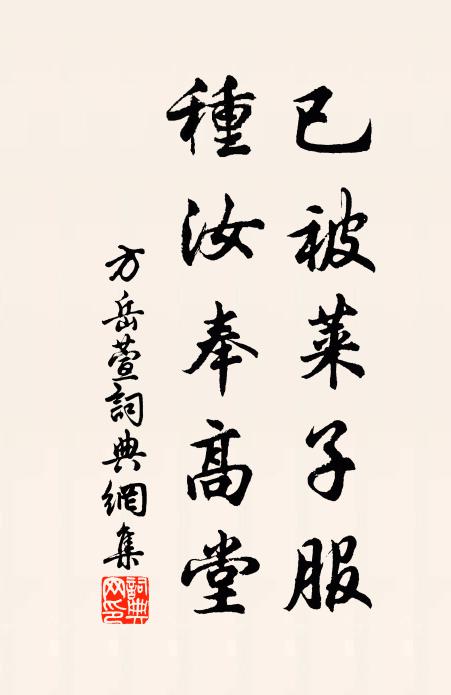 已被萊子服
種汝奉高堂
方岳萱詞典網集
詞典网印